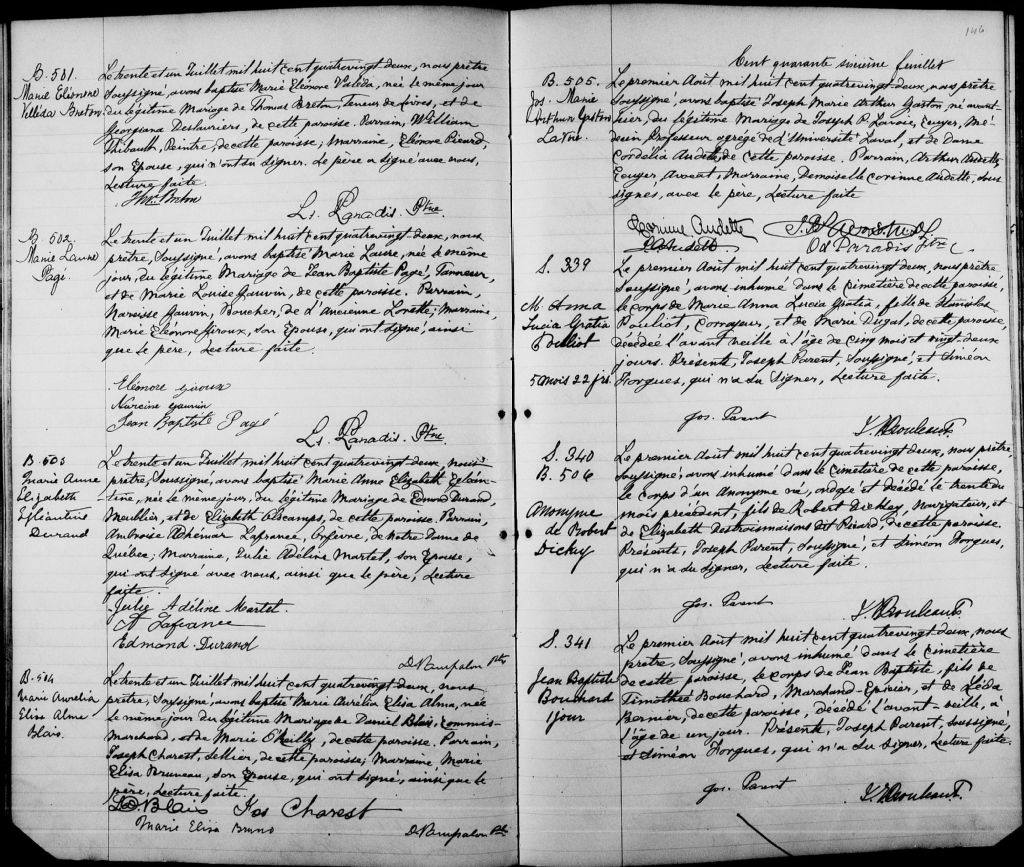 B. 501.
Marie Eléonore
Velléda Breton
Le trente et un Juillet mil huit cent quatrevingt deux, nous prêtre
Soussigné, avons baptisé Marie Eléonore Valéda, née le même jour
du légitime Mariage de Thomas Breton, Teneur de livres, et de
Georgiana Deslauriers, de cette paroisse. Parrain, William
Thibault, Peintre, de cette paroisse, Marraine, Eléonore Picard,
son Epouse, qui n'ont su signer. Le père a signé avec nous,
Lecture faite.
Thos. Breton
Ls. Paradis. Ptre.
B. 502
Marie Laure
Pagé
Le trente et un Juillet mil huit cent quatrevingt deux, nous
prêtre, Soussigné, avons baptisé Marie Laure, née le même
jour, du légitime Mariage de Jean Baptiste Pagé, Tanneur,
et de Marie Louise Gauvin, de cette paroisse. Parrain,
Narcisse Gauvin, Boucher, de l'Ancienne Lorette, Marraine,
Marie Eléonore Giroux, son Epouse, qui ont signé, ainsi
que le père, Lecture faite.
Eléonore Giroux
Narcisse Gauvin
Jean Baptiste Pagé
Ls. Paradis. Ptre.
B. 503
Marie Anne
Elizabeth
Durand
Le trente et un Juillet mil huit cent quatrevingt deux, nous
prêtre, Soussigné, avons baptisé Marie Anne Elizabeth
née le même jour, du légitime Mariage de Edmond Durand,
Meublier, et de Elizabeth Descamps, de cette paroisse. Parrain,
Ambroise Adhémar Lafrance, Orfèvre, de Notre Dame de
Québec, Marraine, Julie Adéline Martel, son Epouse,
qui ont signé avec nous, ainsi que le père, Lecture
faite.
Julie Adéline Martel.
A Lafrance
Edmond Durand
D. Pampalon Ptre
B. 504
Marie Aurelia
Elisa Alma
Blais.
Le trente et un Juillet mil huit cent quatrevingt deux, nous
prêtre, Soussigné, avons baptisé Marie Aurélia Elisa Alma, née
le même jour du légitime Mariage de Daniel Blais, Commis-
marchand, et de Marie O'Reilly, de cette paroisse. Parrain,
Joseph Charest, Sellier, de cette paroisse; Marraine Marie
Elisa Bruneau, son Epouse, qui ont signé, ainsi que le
père, Lecture faite.
D. Blais Jos Charest
Marie Elisa Bruno
D. Pampalon Ptre
146
Cent quarante sixième feuillet
B. 505.
Jos. Marie
Arthur Gaston
Lavoie
Le premier Août mil huit cent quatrevingt deux, nous prêtre
Soussigné, avons baptisé Joseph Marie Arthur Gaston, né avant
hier, du légitime Mariage de Joseph P. Lavoie, Ecuyer, Mé-
decin, Professeur agrégé de L'Université Laval, et de Dame
Cordélia Audette, de cette paroisse. Parrain, Arthur Audette
Ecuyer Avocat, Marraine, Demoiselle Corinne Audette, sous
signés, avec le père, Lecture faite
Corinne Audette
Od Paradis Ptre
S. 339
M. Anna
Lucia Gratia
Pouliot
5 mois 22 jrs.
Le premier Août mil huit cent quatrevingt deux, nous prêtre,
Soussigné, avons inhumé dans le cimetière de cette paroisse,
le corps de Marie Anna Lucia Gratia, fille de Stanislas
Pouliot, Corroyeur, et de Marie Dugal, de cette paroisse,
décédée l'avant veille à l'âge de cinq mois et vingt deux
jours. Présents, Joseph Parent, Soussigné, et Siméon
Forgues, qui n'a su signer, Lecture faite.
Jos. Parent
S. 340
B. 506
Anonyme
de Robert
Dickey
Le premier Août mil huit cent quatrevingt deux, nous prêtre,
soussigné, avons inhumé dans le cimetière de cette paroisse,
le corps d'un Anonyme né, ondoyé et décédé le trente du
mois précédent, fils de Robert Dickey, Navigateur, et
de Elizabeth Destroismaisons dit Picard, de cette paroisse.
Présents, Joseph Parent, Soussigné, et Siméon Forgues,
qui n'a su signer, Lecture faite.
Jos. Parent
S. 341
Jean Baptiste
Bouchard
1 jour
Le premier Août mil huit cent quatrevingt deux, nous
prêtre, soussigné, avons inhumé dans le cimetière
de cette paroisse, le corps de Jean Baptiste, fils de
Timothée Bouchard, Marchand-Epicier, et de Léda
Bernier, de cette paroisse, décédé l'avant veille, à
l'âge de un jour. Présents, Joseph Parent, soussigné,
et Siméon Forgues, qui n'a su signer, Lecture faite.
Jos. Parent